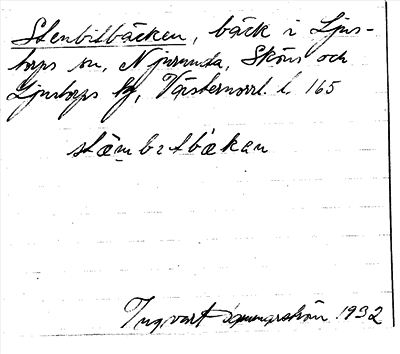 Stenbitbäcken, bäck i Ljus-
torps sn, Njurunda, Sköns och
Ljustorps tg, Västernorrl. l. 165
stæmbɩtbækan
Ingvar 1932